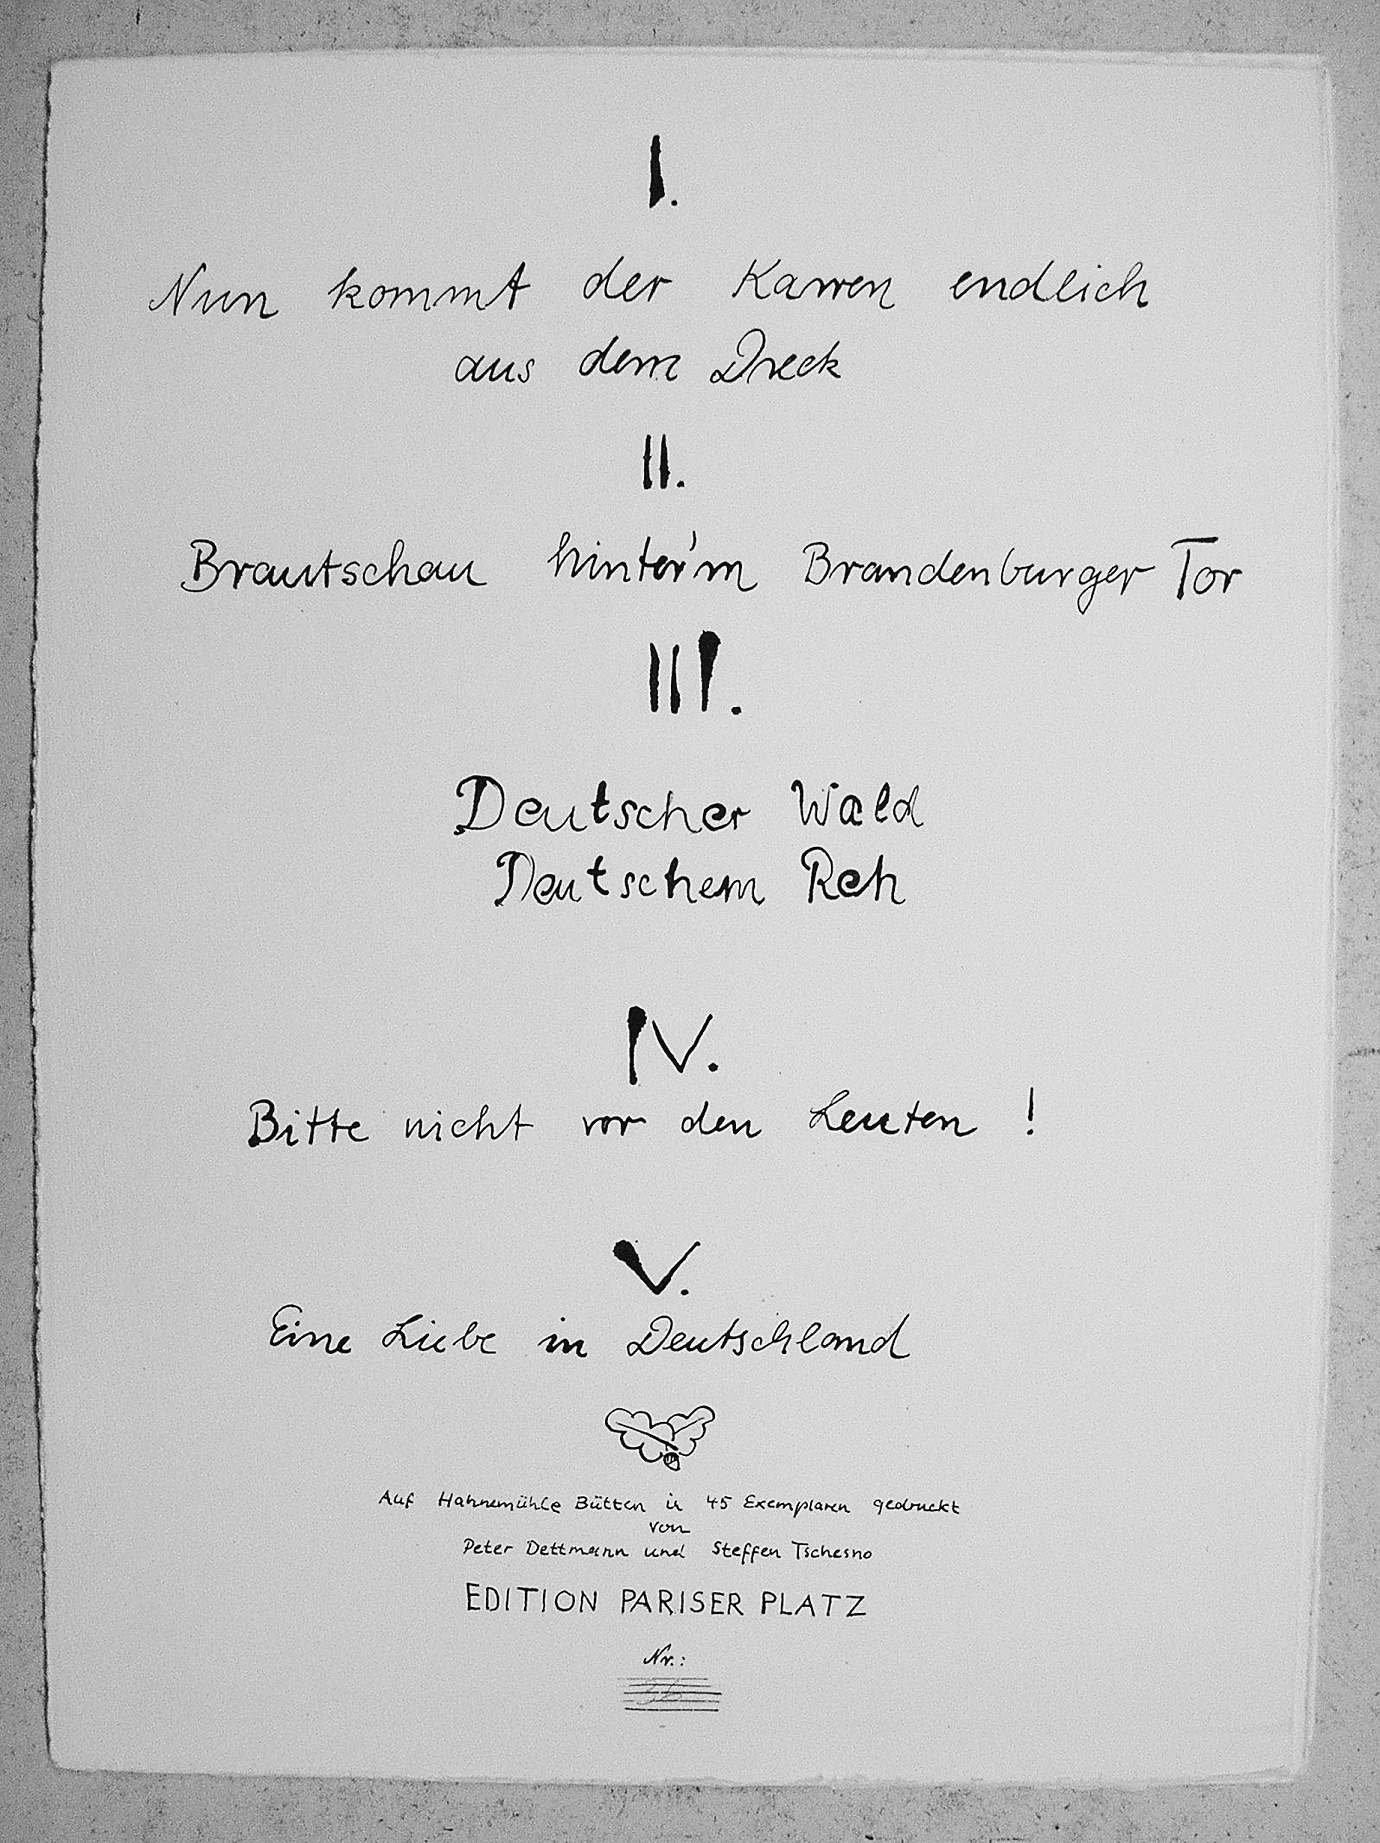 I.
Nun kommt der Karren endlich
aus dem Dreck
II.
Brautschau hinter'm Brandenburger Tor
III.
Deutscher Wald
Deutschem Reh
IV.
Bitte nicht vor den Leuten !
V.
Eine Liebe in Deutschland
Auf Hahnemühle Bütten in 45 Exemplaren gedruckt
von
Peter Dettmann und Steffen Tschesno
EDITION PARISER PLATZ
Nr.: